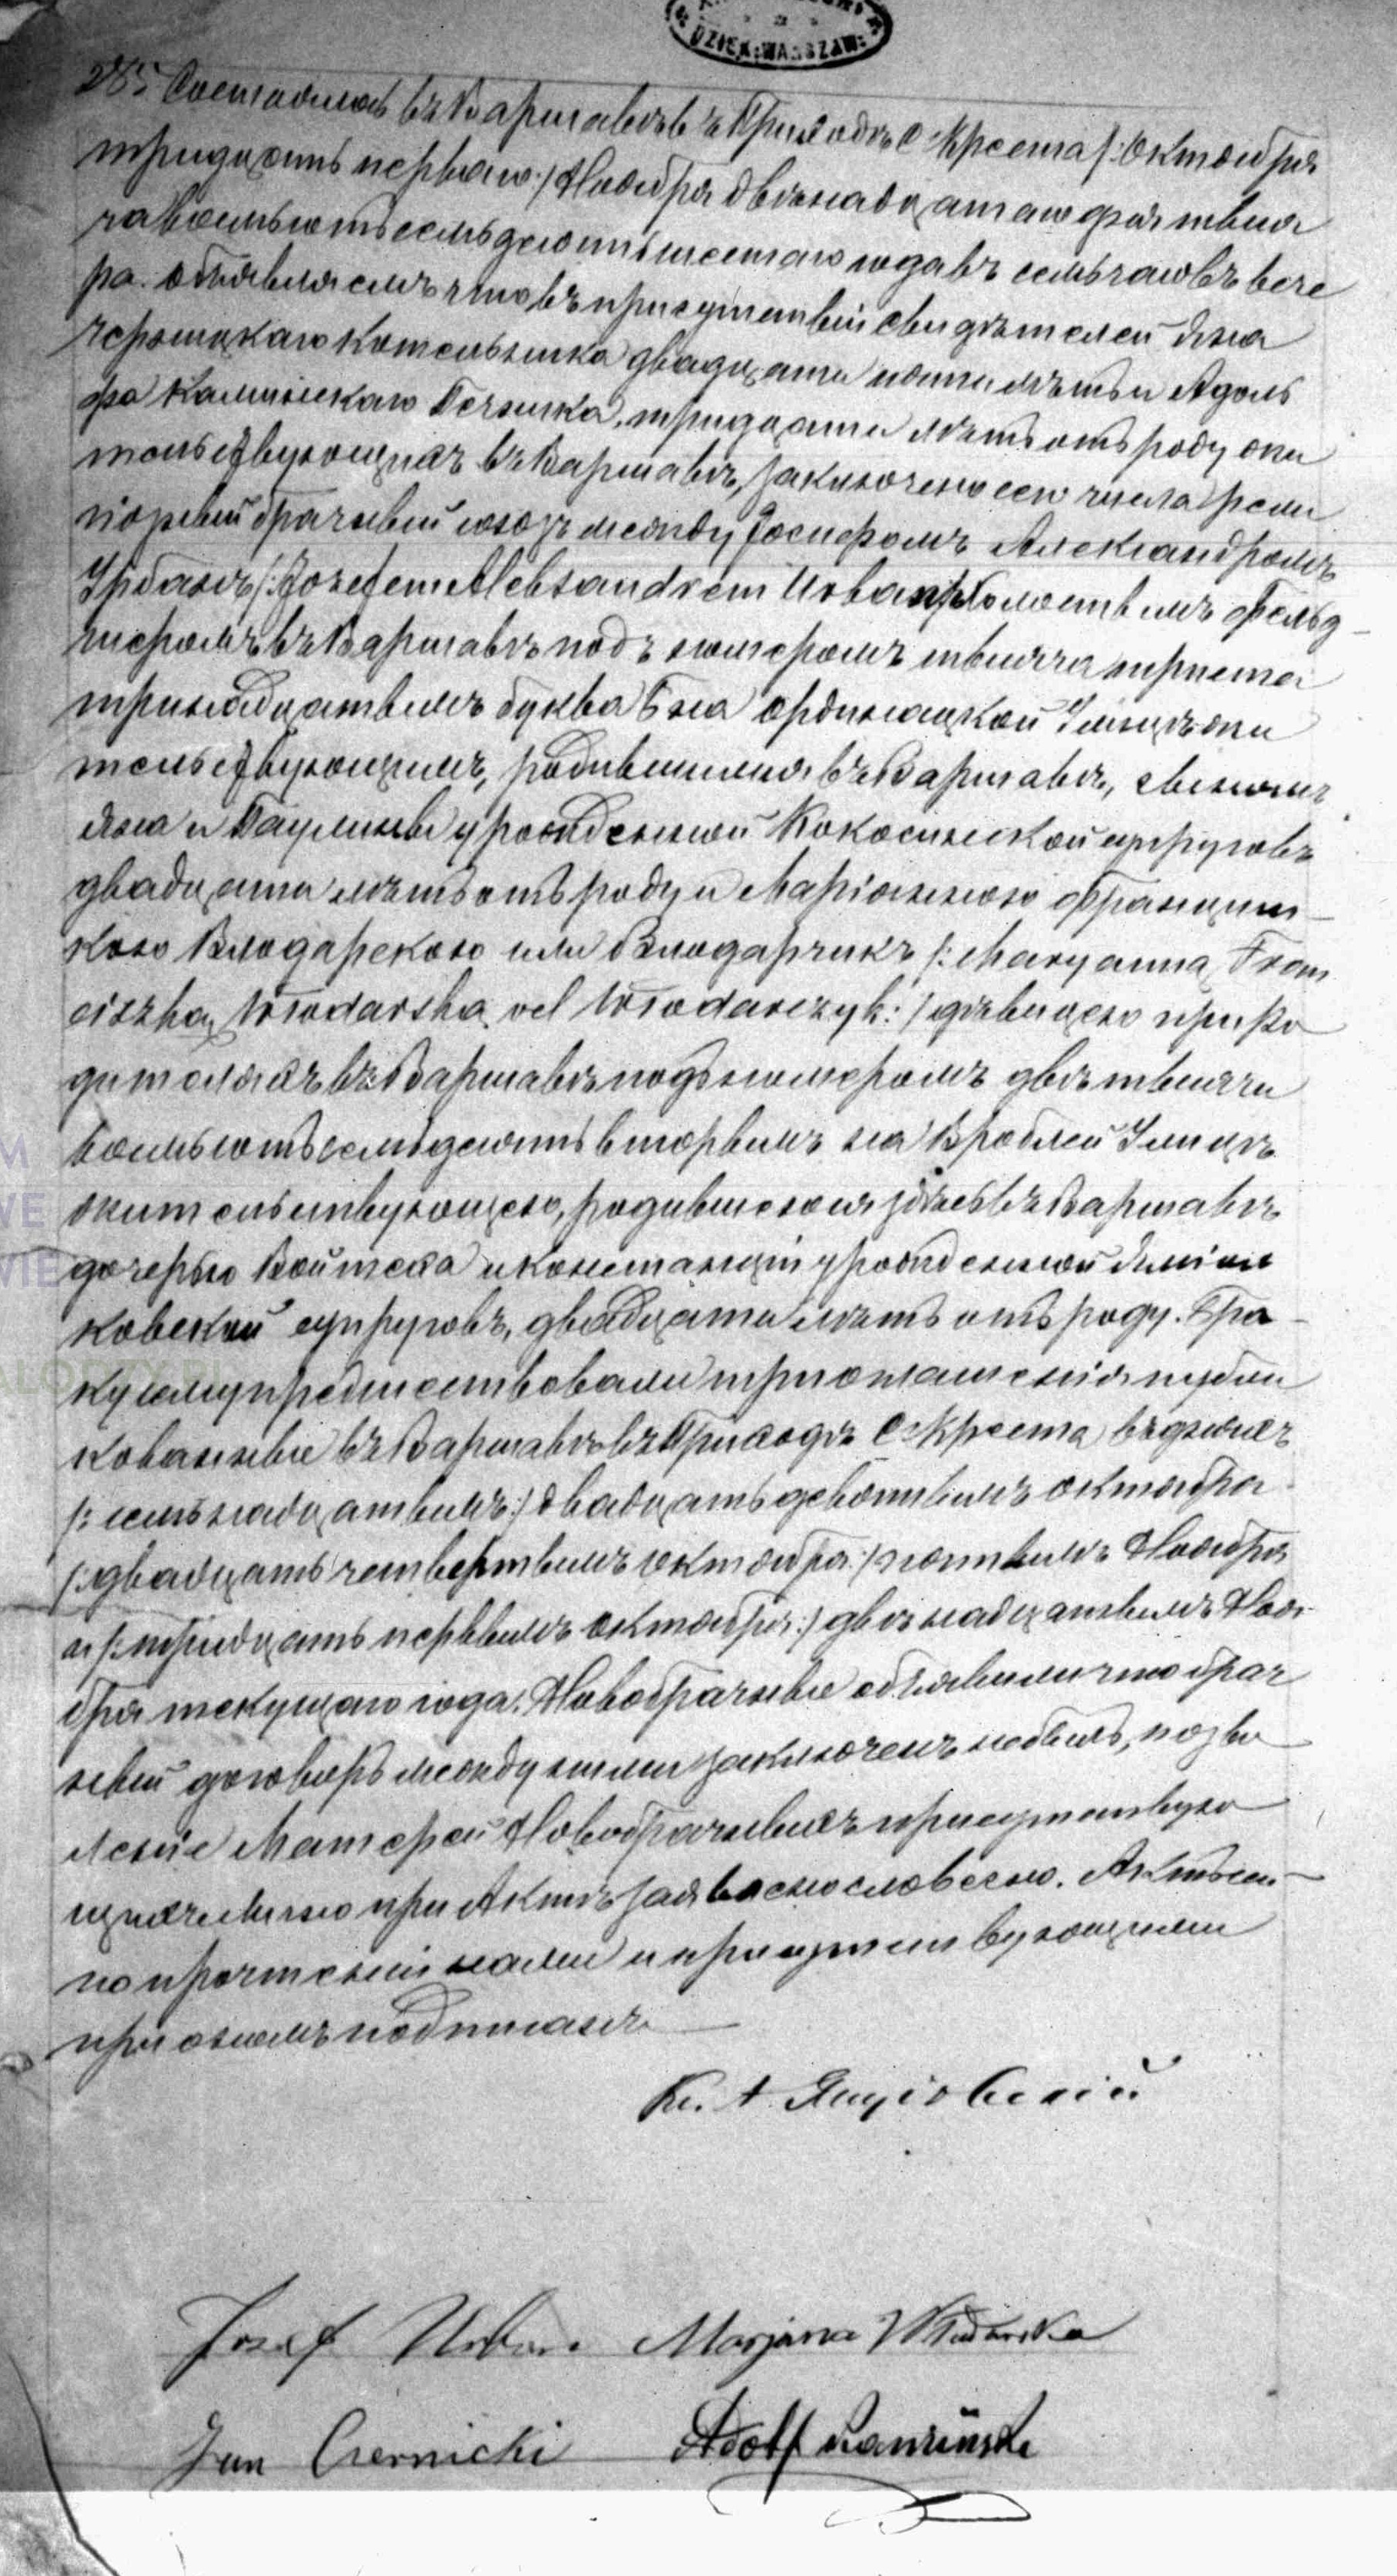 DZIEK: WARSZAW:
285 Состоялось въ Варшавѣ въ Приходѣ С. Креста /: Октября
тридцать перваго :/ Ноября двѣнадцатаго дня тысяча
восемьсотъ семьдесятъ шестаго года въ семь часовъ вече
ра. Объявляемъ что въ присутствіи свидѣтелей Яна
Черницкаго Котельника двадцати пяти лѣтъ и Адоль
фа Каминскаго Печника, тридцати лѣтъ отъ роду жи
тельствующихъ въ Варшавѣ, заключено сего числа рели
гіозный брачный союзъ между Іосифомъ Александромъ
Урбанъ /: Józefem Alexandrem Urban :/ Холостымъ фельд
шеромъ въ Варшавѣ подъ номеромъ тысяча триста
тринадцатымъ буква Б на Ординацкой Улицѣ жи
тельствующимъ, родившимся въ Варшавѣ, сыномъ
Яна и Паулины урожденной Кокосинской супруговъ
двадцати лѣтъ отъ роду и Маріанною Францишкою
Влодарскою или Влодарчикъ /: Maryanna Fran
ciszka Włodarska vel Włodarczyk :/ дѣвицею при Ро
дителяхъ въ Варшавѣ подъ номеромъ двѣ тысячи
восемьсотъ семьдесятъ вторымъ на Вроблей Улицѣ
жительствующею, родившеюся здѣсь въ Варшавѣ
дочерью Войтеха и Констанціи урожденной
ковской супруговъ, двадцати лѣтъ отъ роду. Бра
ку сему предшествовали три оглашенія публи
кованные въ Варшавѣ въ Приходѣ С. Креста въ дняхъ
/: семьнадцатымъ :/ двадцать девятымъ октября
/: двадцать четвертымъ октября :/ пятымъ Ноября
и /: тридцать первымъ октября :/ двѣнадцатымъ Ноя
бря текущаго года. Новобрачные объявили что брач
ный договоръ между ними заключенъ не былъ, позво
леніе Матерей Новобрачныхъ присутствую
щихъ лично при Актѣ заявлено словесно. Актъ сей
по прочтеніи нами и присутствующими
при ономъ подписанъ
Кс. А.
Józef Urban Marjana Włodarska
Jan Czernicki Adolf Kamiński